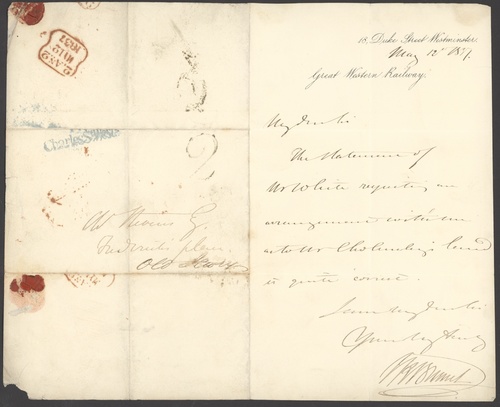 Charles Street
2
Frederick's place
Old Jewry
18, Duke Street Westminster.
May 12th 1837.
Great Western Railway.
My dear Sir
The statement of
Mr White respecting an
arrangement with me
as to Mr Cholmley's land
is quite correct.
I am My dear Sir
Yours very truly
I K Brunel